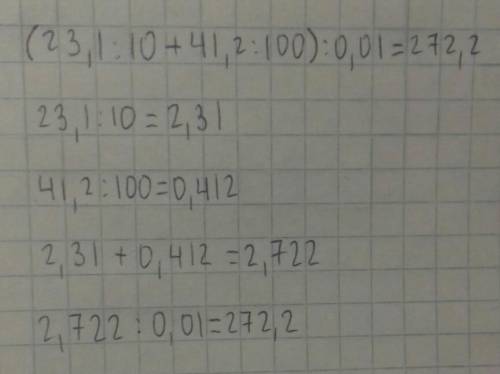 (23,1:10+41,2:100):0,01=272,2
23,1:10=2,31
41,2:100=0,412
2,31+0,412=2,722
2,722:0,01=272,2